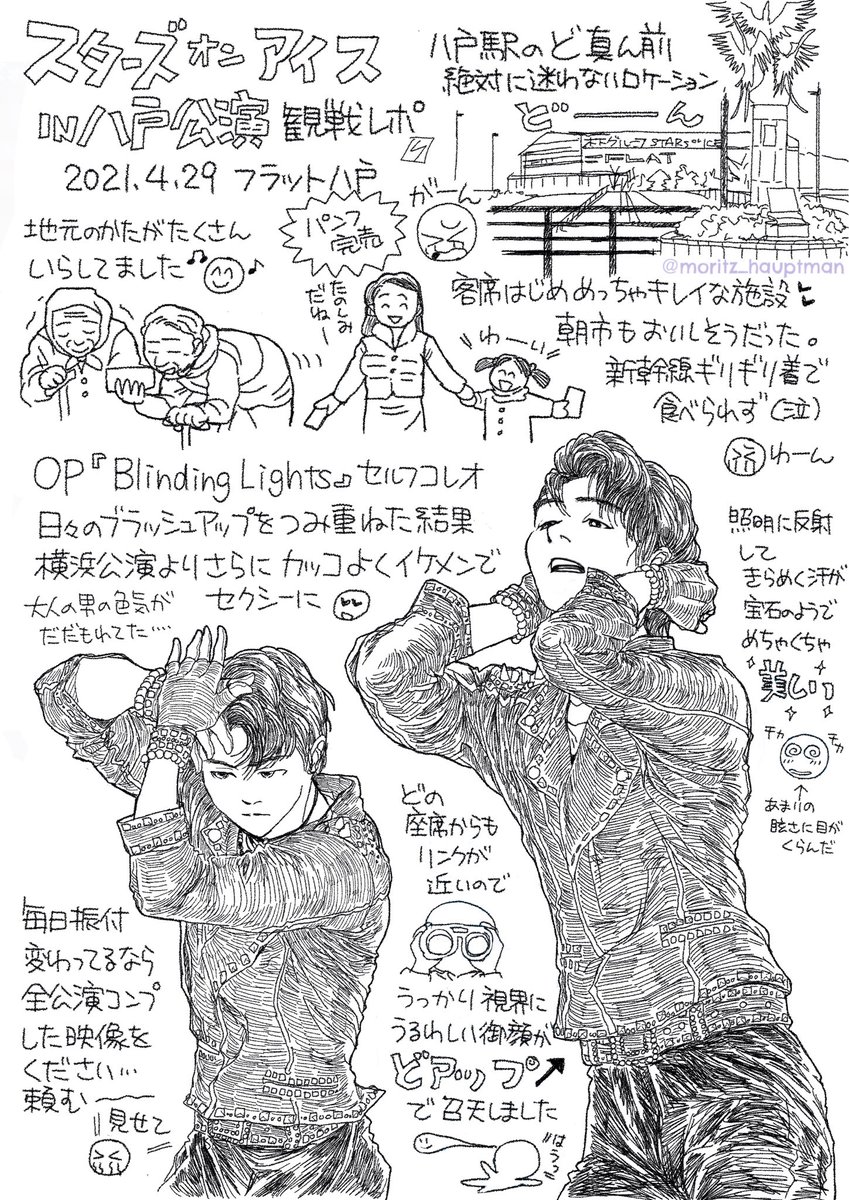 スターズオンアイス
IN八戸公演 観戦レポ
2021.4.29 フラット八戸
八戸駅のど真ん前
絶対に迷わないロケーション
どーーん
木下グループ STARS ON ICE
FLAT
@moritz_hauptman
地元のかたがたくさん
いらしてました♪♪
パンフ
完売
がーん
たのしみ
だねー
わーい
客席はじめめっちゃキレイな施設
朝市もおいしそうだった。
新幹線ギリギリ着で
食べられず(泣)
泣 わーん
OP『Blinding Lights』セルフコレオ
日々のブラッシュアップをつみ重ねた結果
横浜公演よりさらにカッコよくイケメンで
セクシーに
大人の男の色気が
だだもれてた....
照明に反射
して
きらめく汗が
宝石のようで
めちゃくちゃ
美しい
チカ チカ
↑
あまりの
眩さに目が
くらんだ
どの
座席からも
リンクが
近いので
うっかり視界に
うるわしい御顔が
どアップ
で召天しました
はうっ
毎日振付
変わってるなら
全公演コンプ
した映像を
ください…
頼む――
見せて